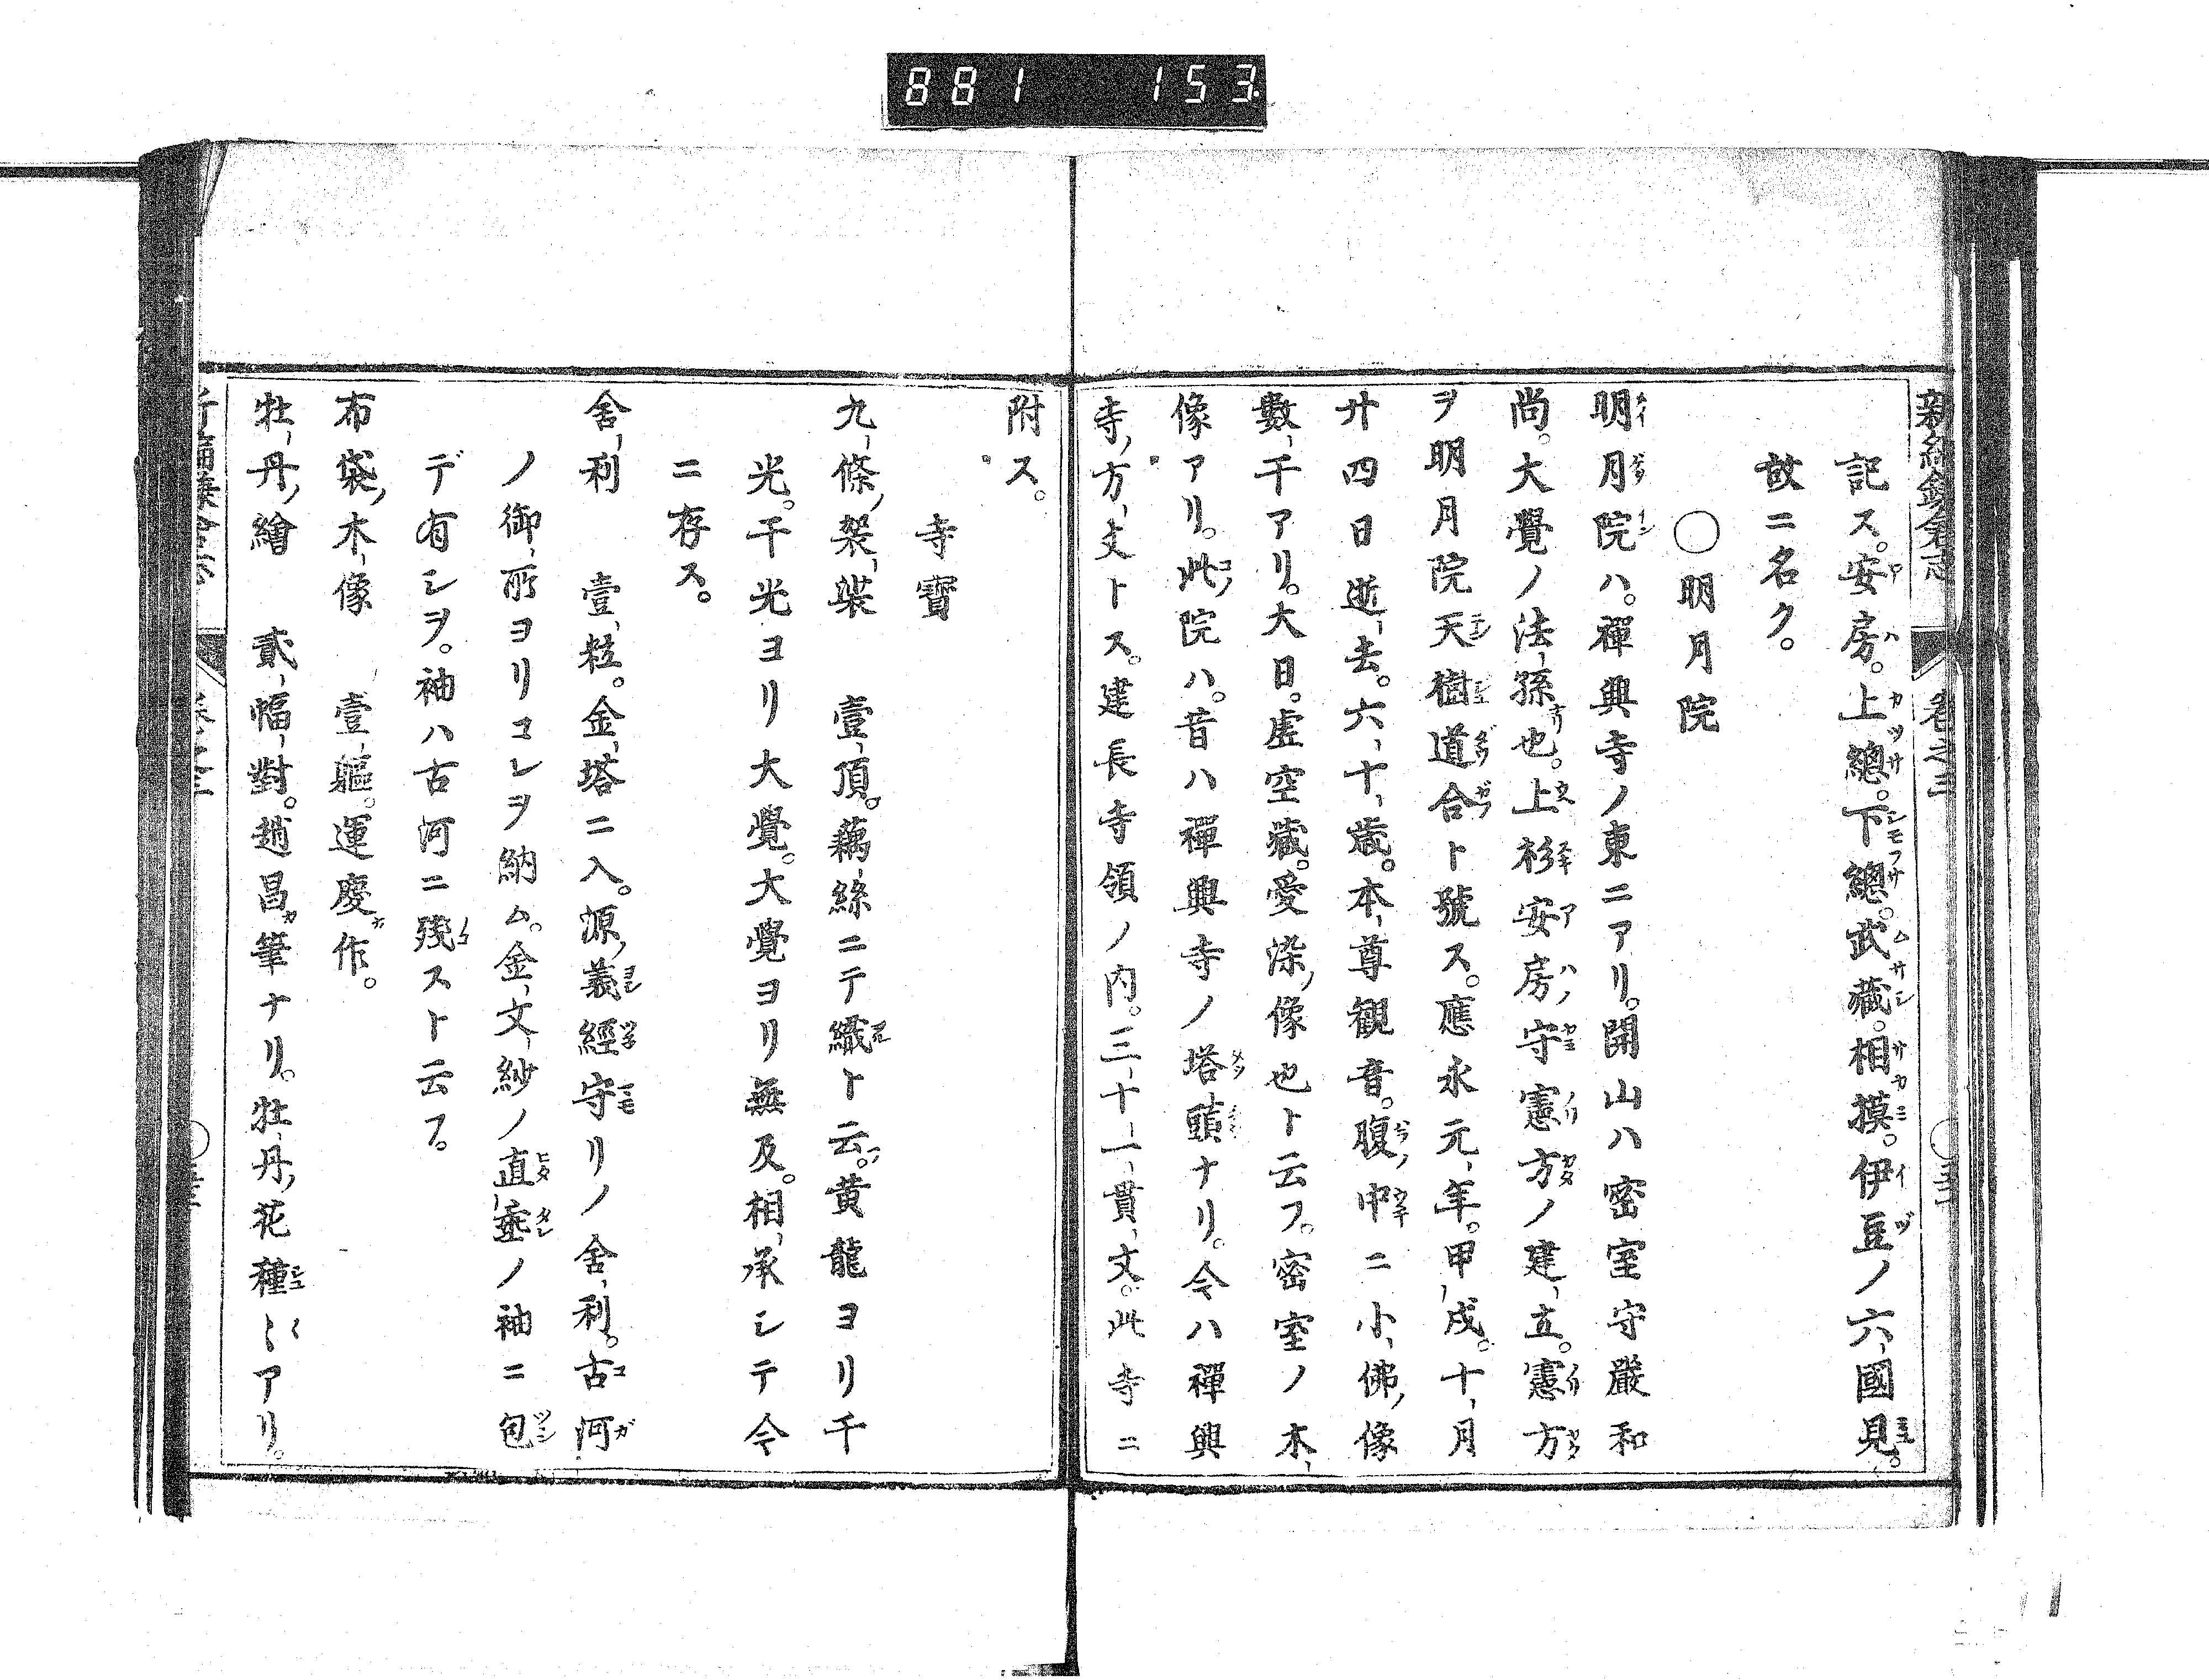 881 153
記ス。安房。上總。下總。武藏。相摸。伊豆ノ六國見。
故ニ名ク。
〇明月院
明月院ハ。禪興寺ノ東ニアリ。開山ハ密室守嚴和
尚。大覺ノ法孫也。上杉安房守憲方ノ建立。憲方
ヲ明月院天樹道合ト號ス。應永元年。甲戌。十月
廿四日逝去。六十歳。本尊観音。腹中ニ小佛像
數千アリ。大日。虚空藏。愛染像也ト云フ。密室ノ木
像アリ。此院ハ。昔ハ禪興寺ノ塔頭ナリ。今ハ禪興
寺方丈トス。建長寺領ノ内。三十一貫文。此寺ニ
附ス。
寺寶
九條袈裟 壹頂。藕絲ニテ織ト云。黄龍ヨリ千
光。千光ヨリ大覺。大覺ヨリ無及。相承シテ今
ニ存ス。
舍利 壹粒。金塔ニ入。源義經守リノ舍利。古河
ノ御所ヨリコレヲ納ム。金文紗ノ直垂ノ袖ニ包
デ有シヲ。袖ハ古河ニ殘スト云フ。
布袋木像 壹軀。運慶作。
牡丹繪 貳幅對。趙昌筆ナリ。牡丹花種〻アリ。